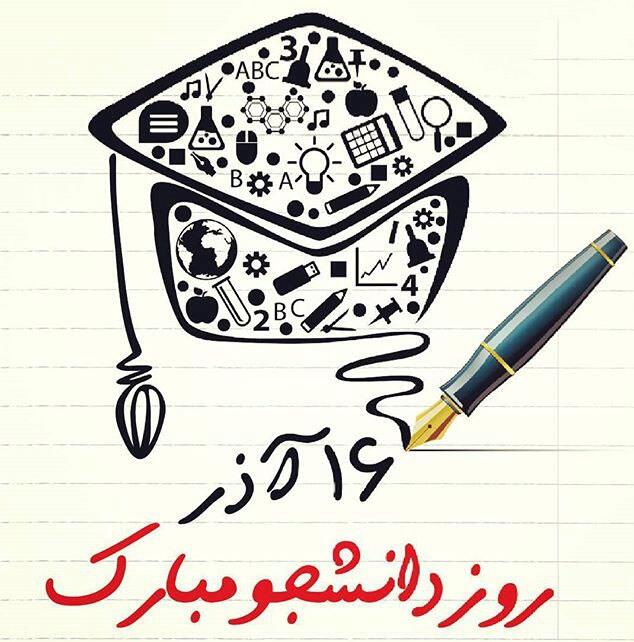 3
ABC
B
A
4
2
BC
۱۶ آذر
روز دانشجو مبارک